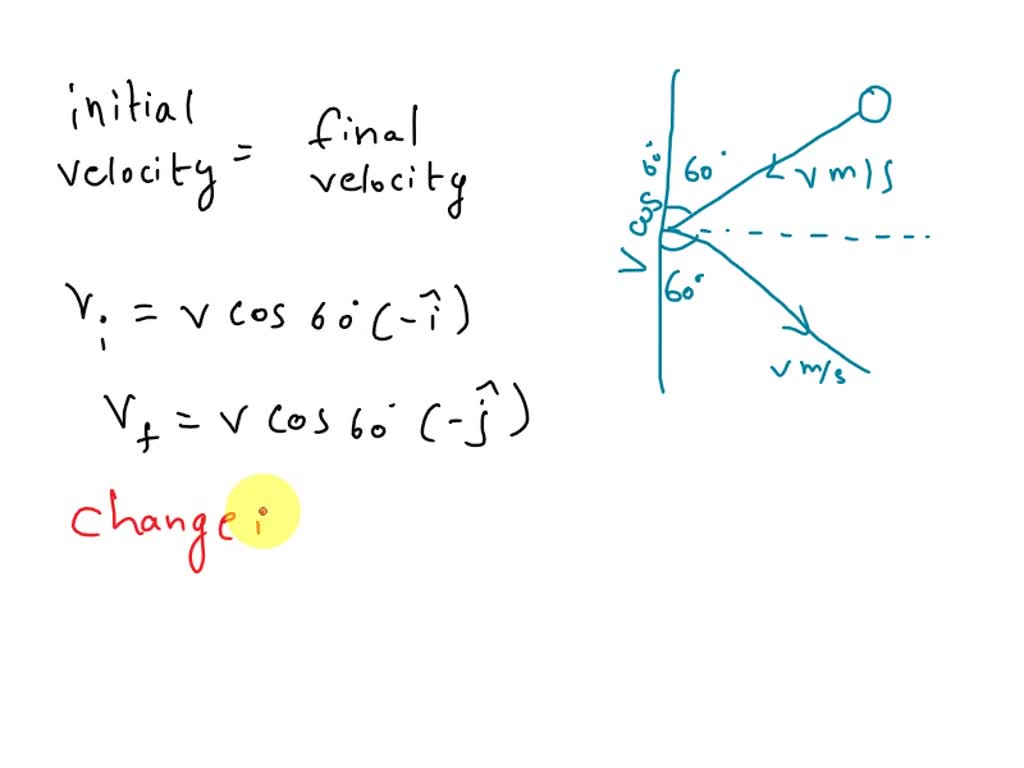 initial
velocity = final
velocity
Vi = v cos 60° (-î)
Vf = v cos 60° (-ĵ)
change i
60°
v m/s
v cos 60°
60°
v m/s